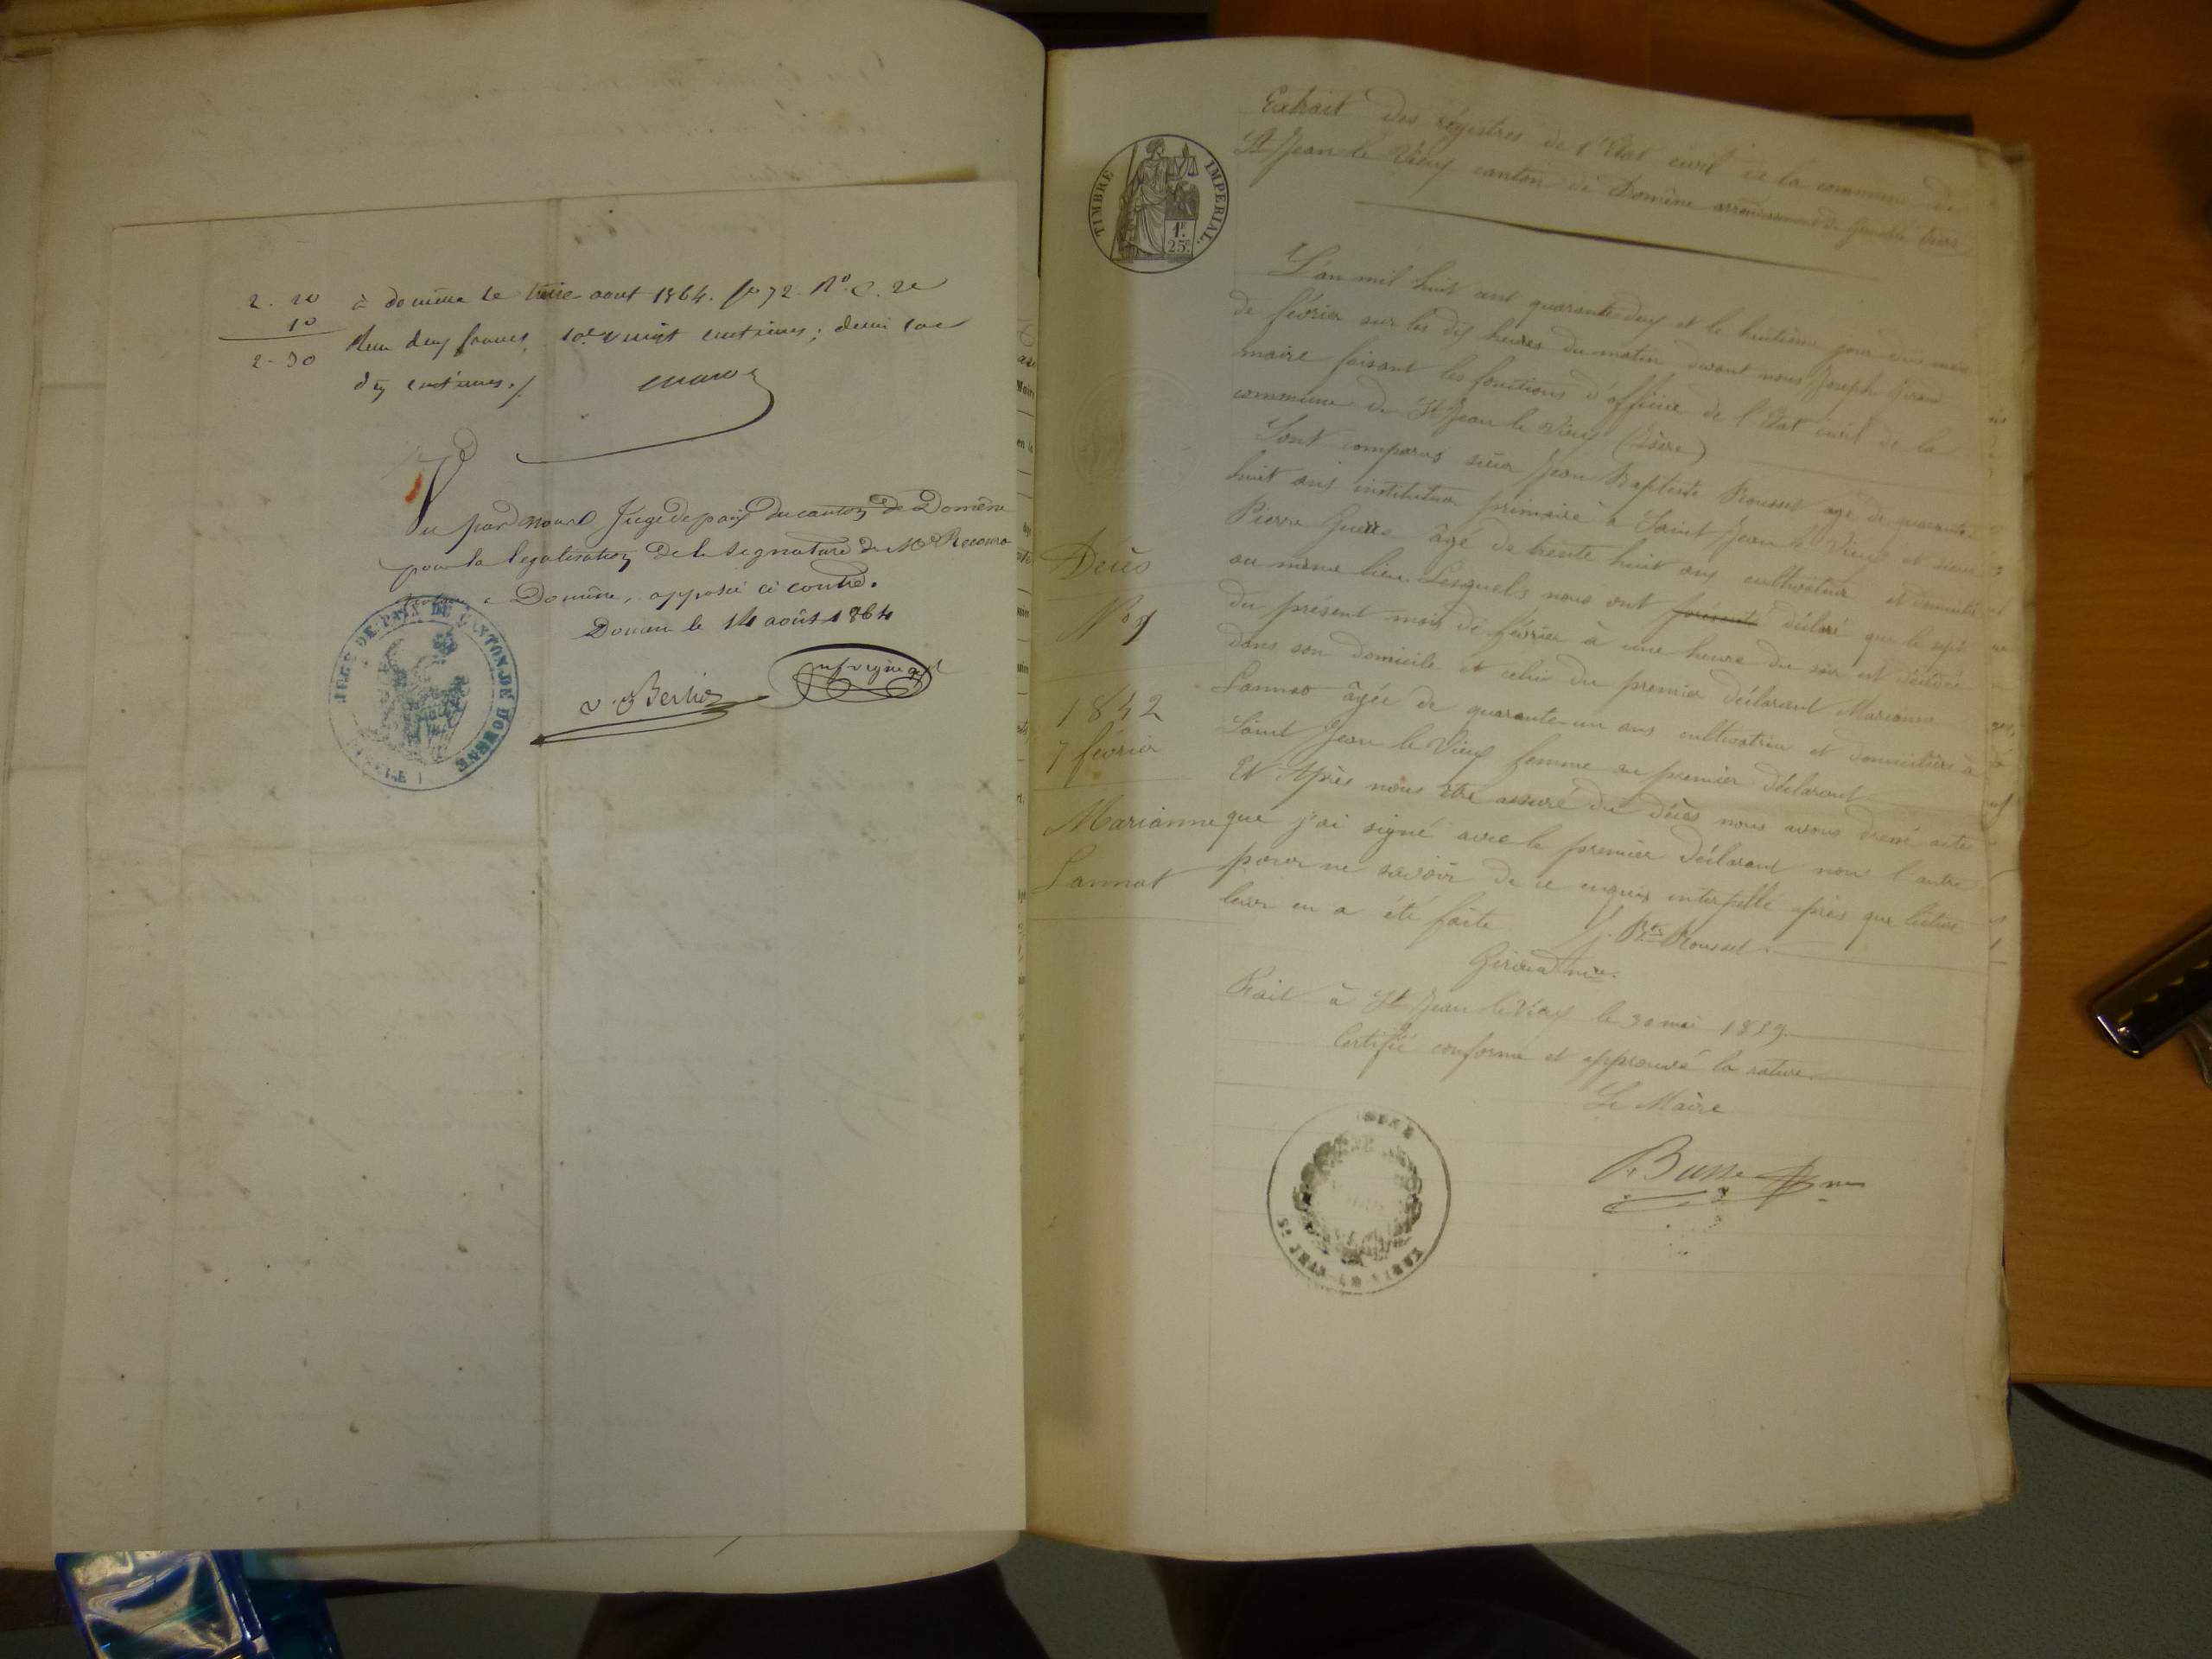 2. 20 à domène le treize aout 1864. fo 72. Ro. C. 2e
10 deux francs vingt centimes;
2-30 dix centimes./.
Vu par nous Juge de paix du canton de Domène
pour la légalisation de la signature de Me Recoura
à Domène, apposée ci contre.
Domène le 14 août 1864
Berlioz
JUGE DE PAIX DU CANTON DE DOMENE
TIMBRE IMPERIAL.
1F. 25c.
Extrait des régistres de l'Etat civil de la commune de
St Jean le Vieux canton de Domène arrondissement de Grenoble Isère
Décès
No 7
1842
7 février
Marianne
Lannat
L'an mil huit cent quarante deux et le huitième jour du mois
de février sur les dix heures du matin, devant nous Joseph
maire faisant les fonctions d'officier de l'Etat civil de la
commune de St Jean le Vieux (Isère)
Sont comparus sieur Jean Baptiste Rousset agé de quarante
huit ans instituteur primaire à Saint Jean le Vieux et sieur
Pierre Guerre âgé de trente huit ans cultivateur et domicilié
au même lieu. Lesquels nous ont présenté déclaré que le sept
du présent mois de février à une heure du soir est décédée
dans son domicile et celui du premier déclarant Marianne
Lannat âgée de quarante-un ans cultivatrice et domiciliée à
Saint Jean le Vieux femme au premier déclarant
Et Après nous être assuré du décès nous avons dressé acte
que j'ai signé avec le premier déclarant non l'autre
pour ne savoir de ce enquis interpellé après que lecture
leur en a été faite. J. Bte Rousset.
Fait à St Jean le Vieux le 30 mai
Certifié conforme et approuvé la rature.
Le Maire